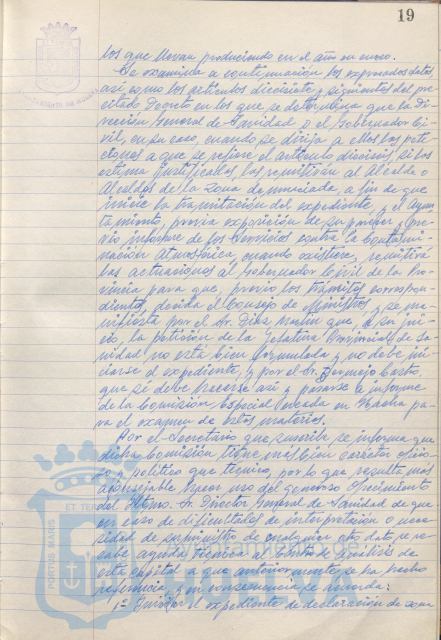 19
los que llevan produciendo en el año en curso.
Se examina a continuación los expresados datos
así como los artículos diecisiete y siguientes del pre
citado Decreto en los que se determina que la Di
rección General de Sanidad o el Gobernador Ci-
vil, en su caso, cuando se dirija a ellos las peti
ciones a que se refiere el artículo dieciseis, si las
estima justificadas, las remitirán al Alcalde o
Alcaldes de la zona denunciada, a fin de que
inicie la tramitación del expediente, y el Ayun
tamiento, previa exposición de su parecer, y pre
vio informe de los Servicios contra la Contami-
nación Atmosférica, cuando existiere, remitirá
las actuaciones al Gobernador Civil de la Pro
vincia para que, previo los trámites correspon-
dientes, decida el Consejo de Ministros, y se ma-
nifiesta por el Sr. Díaz Martín que, a su jui-
cio, la petición de la Jefatura Provincial de Sa-
nidad no está bien formulada y no debe ini
ciarse el expediente, y por el Sr. Bermejo Casto,
que sí debe hacerse así y pasarse a informe
de la Comisión Especial creada en Huelva pa-
ra el examen de estas materias.
Por el Secretario que suscribe se informa que
dicha Comisión tiene más bien carácter
y político que técnico, por lo que resulta más
aconsejable hacer uso del generoso ofrecimiento
del Iltmo. Sr. Director General de Sanidad de que
en caso de dificultades de interpretación o nece
sidad de suministro de cualquier otro dato, se re-
cabe ayuda técnica al Centro de análisis de
esta capital a que anteriormente se ha hecho
referencia, y en consecuencia se acuerda:
1º Iniciar el expediente de declaración de zona
PORTUS MARIS
ET TERRAE
HUELVA